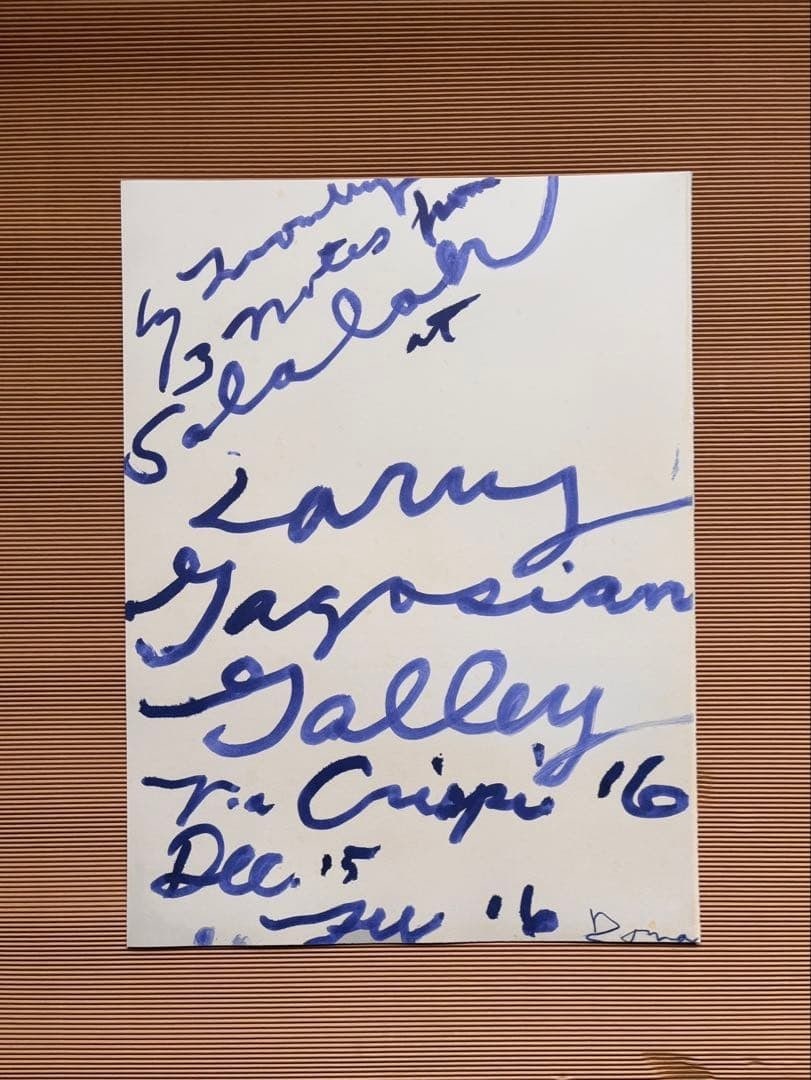 Cy Twombly
3 notes from
Salalah
at
Larry
Gagosian
Galley
Via Crispi '16
Dec. '15
Feb '16
Roma